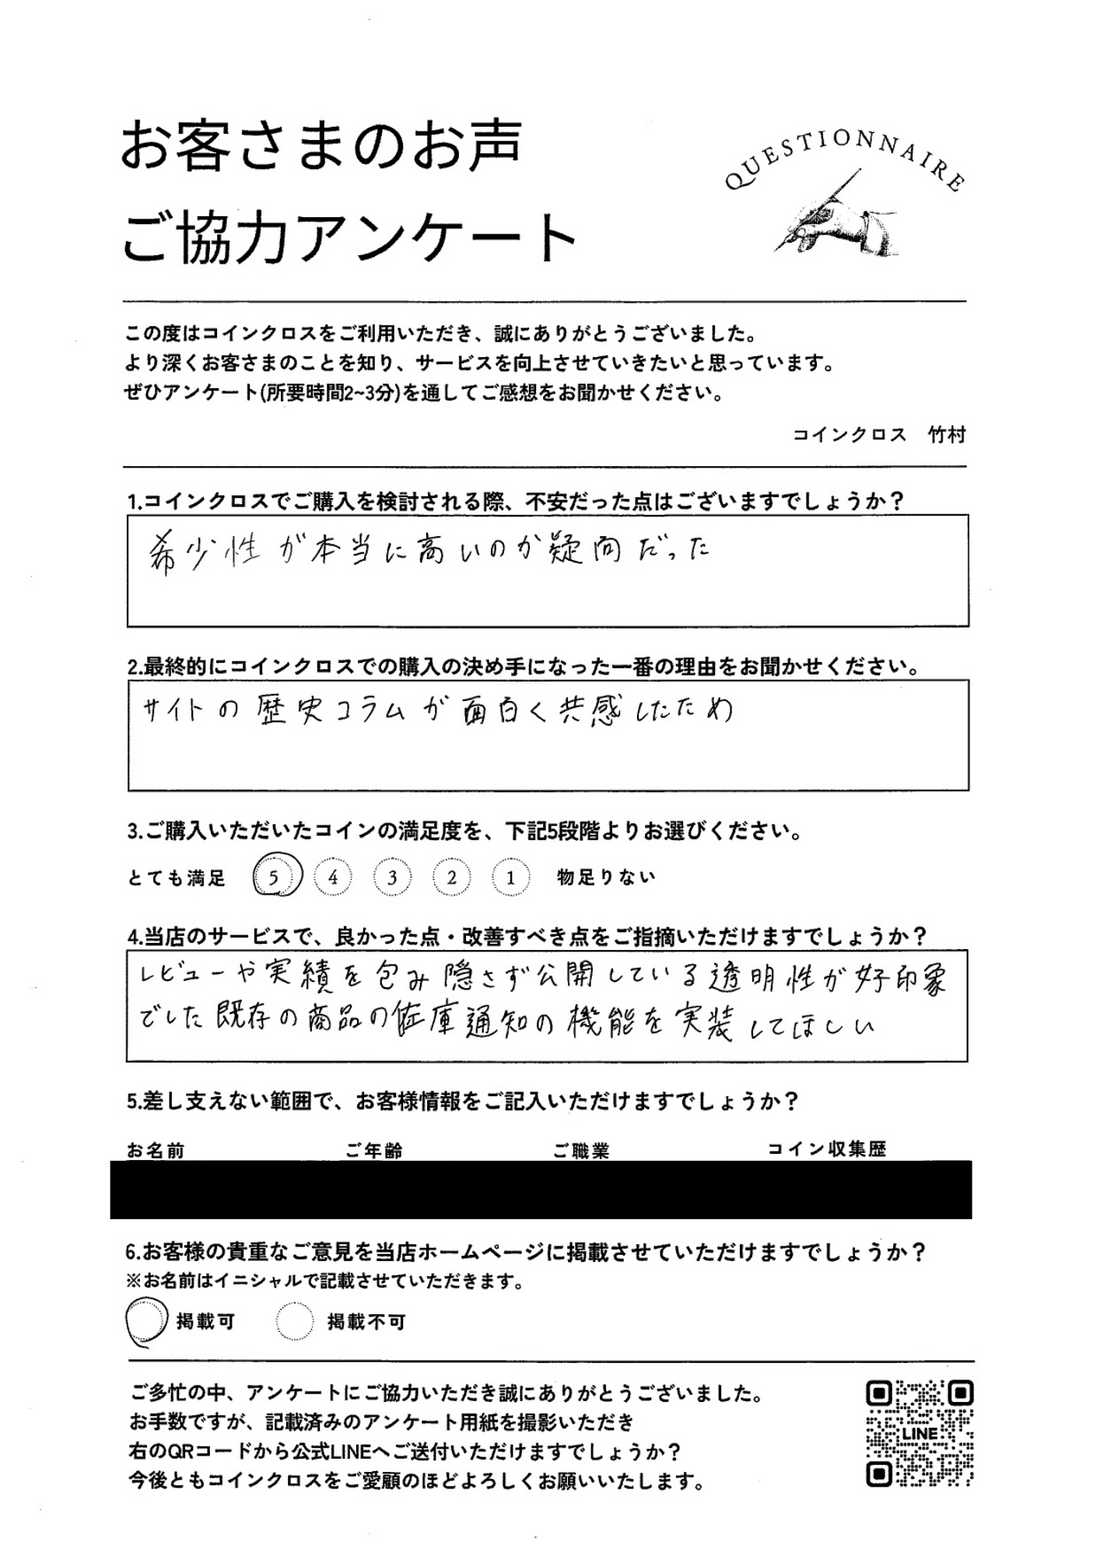 お客さまのお声
ご協力アンケート
QUESTIONNAIRE
この度はコインクロスをご利用いただき、誠にありがとうございました。
より深くお客さまのことを知り、サービスを向上させていきたいと思っています。
ぜひアンケート(所要時間2~3分)を通してご感想をお聞かせください。
コインクロス　竹村
1.コインクロスでご購入を検討される際、不安だった点はございますでしょうか？
希少性が本当に高いのか疑問だった
2.最終的にコインクロスでの購入の決め手になった一番の理由をお聞かせください。
サイトの歴史コラムが面白く共感したため
3.ご購入いただいたコインの満足度を、下記5段階よりお選びください。
とても満足 5 4 3 2 1 物足りない
4.当店のサービスで、良かった点・改善すべき点をご指摘いただけますでしょうか？
レビューや実績を包み隠さず公開している透明性が好印象
でした既存の商品の在庫通知の機能を実装してほしい
5.差し支えない範囲で、お客様情報をご記入いただけますでしょうか？
お名前 ご年齢 ご職業 コイン収集歴
6.お客様の貴重なご意見を当店ホームページに掲載させていただけますでしょうか？
※お名前はイニシャルで記載させていただきます。
掲載可 掲載不可
ご多忙の中、アンケートにご協力いただき誠にありがとうございました。
お手数ですが、記載済みのアンケート用紙を撮影いただき
右のQRコードから公式LINEへご送付いただけますでしょうか？
今後ともコインクロスをご愛顧のほどよろしくお願いいたします。
LINE